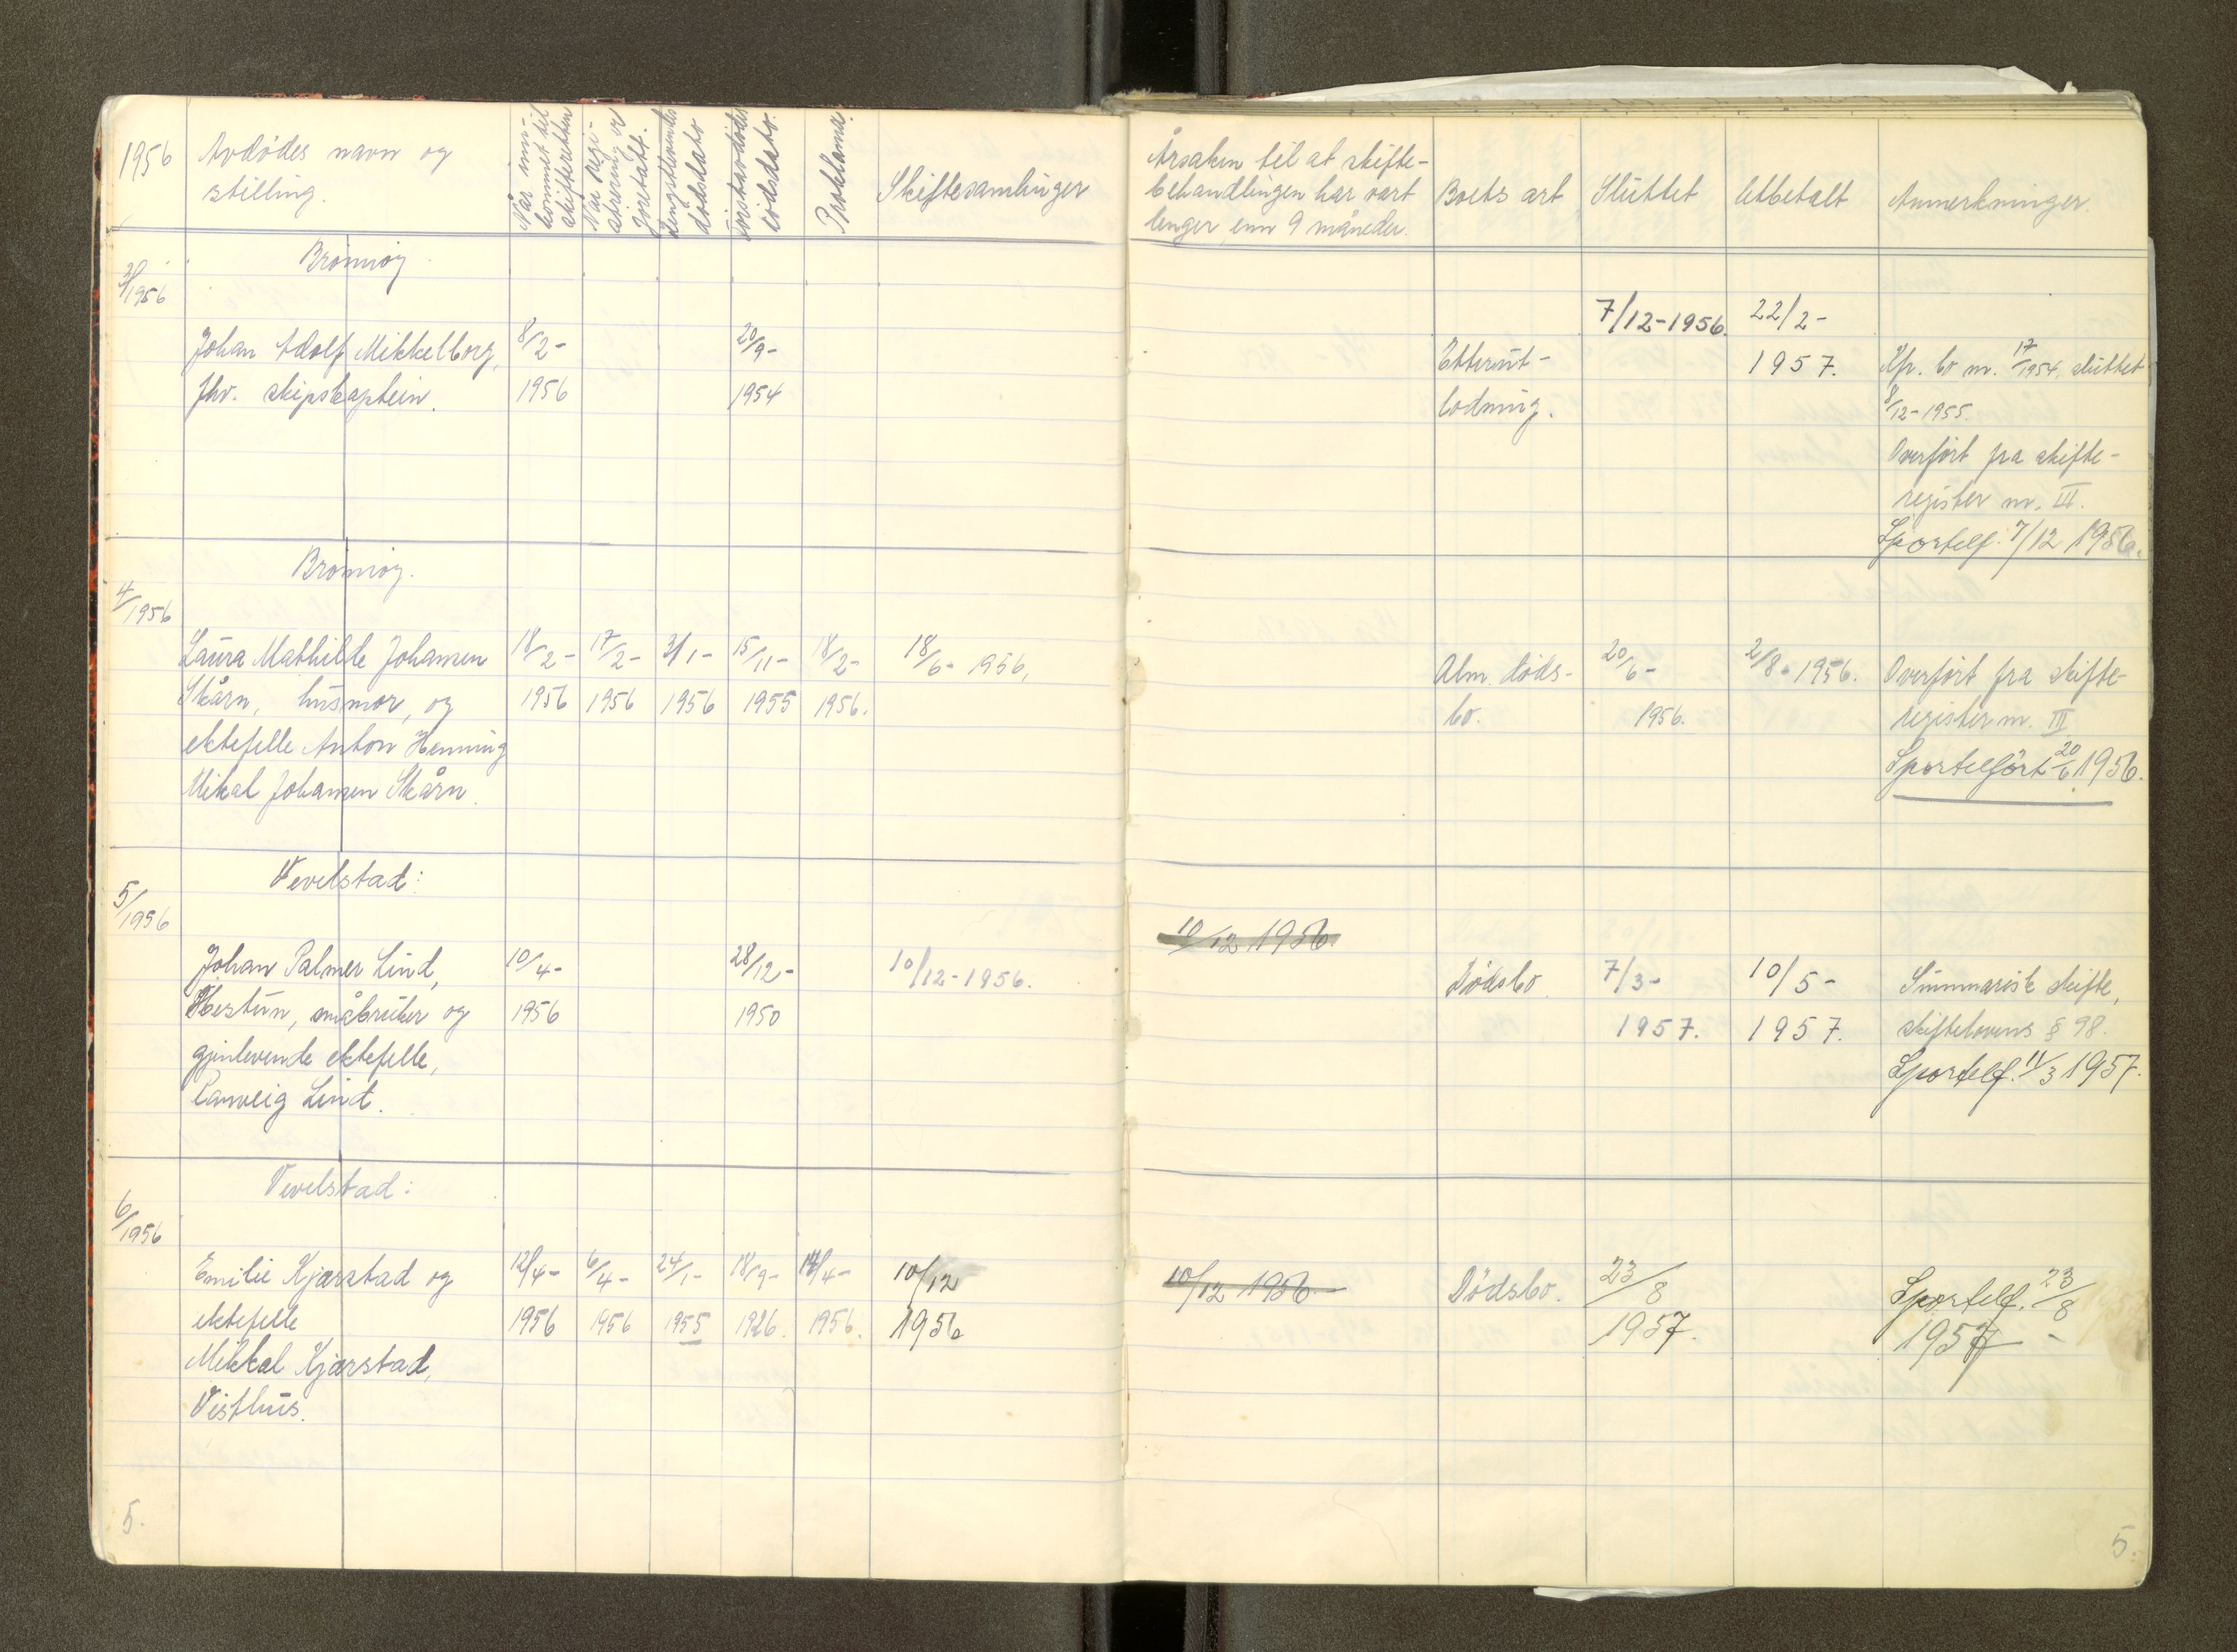 1956
Avdødes navn og
stilling.
Når inn-
kommet til
skifteretten
Når regi-
strering er
foretatt.
Lengstlevendes
dødsdato
Førstavdødes
dødsdato.
Proklama.
Skiftesamlinger
Årsaken til at skifte-
behandlingen har vart
lenger enn 9 måneder.
Boets art
Sluttet
Utbetalt
Anmerkninger.
Brønnøy.
3/1956
Johan Adolf Mikkelborg,
fhv. skipskaptein.
8/2-
1956
20/9-
1954
Etterut-
lodning.
7/12-1956.
22/2-
1957.
Kfr. bo nr. 17/1954, sluttet
8/12-1955.
Overført fra skifte-
register nr. III.
Sportelf. 7/12 1956.
Brønnøy.
4/1956
Laura Mathilde Johansen
Skårn, husmor, og
ektefelle Anton Henning
Mikal Johansen Skårn.
18/2-
1956
17/2-
1956
3/1-
1956
15/11-
1955
18/2-
1956.
18/6- 1956,
Alm. døds-
bo.
20/6-
1956.
2/8- 1956.
Overført fra skifte-
register nr. III
Sportelført 20/6 1956.
Vevelstad:
5/1956
Johan Palmer Lind,
Hestun, småbruker og
gjenlevende ektefelle,
Ranveig Lind.
10/4-
1956
28/12-
1950
10/12-1956.
10/12 1956.
Dødsbo.
7/3-
1957.
10/5-
1957.
Summarisk skifte,
skiftelovens § 98.
Sportelf. 11/3 1957.
Vevelstad:
6/1956
Emilie Kjærstad og
ektefelle
Mikkal Kjærstad,
Visthus.
12/4-
1956
6/4-
1956
24/1-
1955
18/9-
1926.
12/4-
1956.
10/12
1956
10/12 1956
Dødsbo.
23/8
1957.
Sportelf. 23/8
1957 -
5.
5.